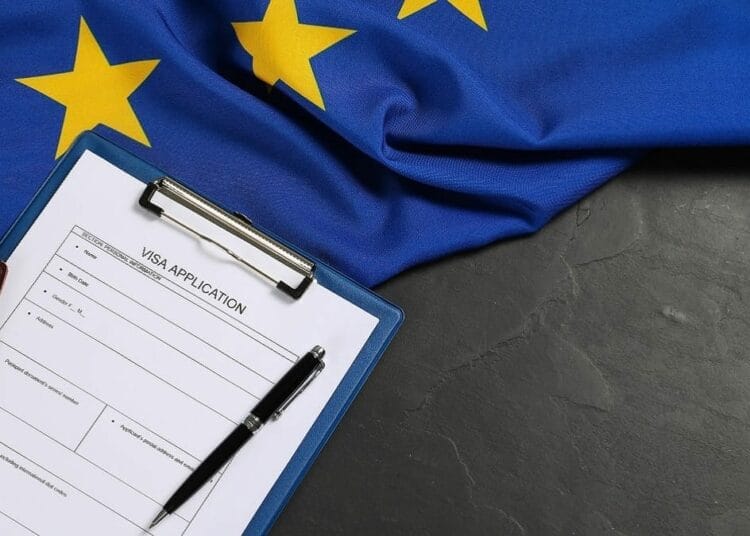 VISA APPLICATION
SECTION: PERSONAL INFORMATION
Name
Birth Date
Gender F__ M__
Address
document's series/ number
Applicant's postal address and
including international dial codes)